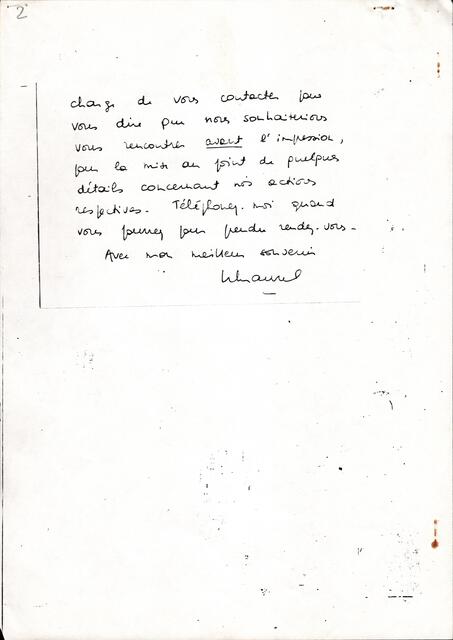 2
charge de vous contacter pour
vous dire que nous souhaiterions
vous rencontrer avant l'impression,
pour la mise au point de quelques
détails concernant nos actions
respectives. Téléphonez-moi quand
vous pourrez pour prendre rendez-vous.
Avec mon meilleur souvenir